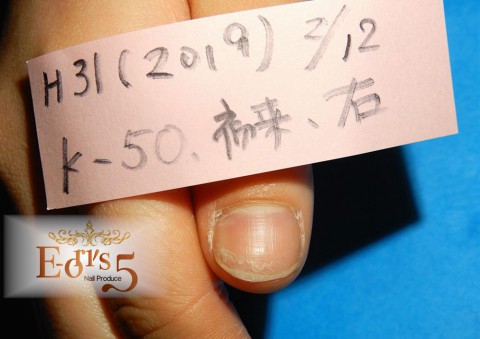 H31(2019) 2/12
K-50、初来、右
E-Grrs5
Nail Produce